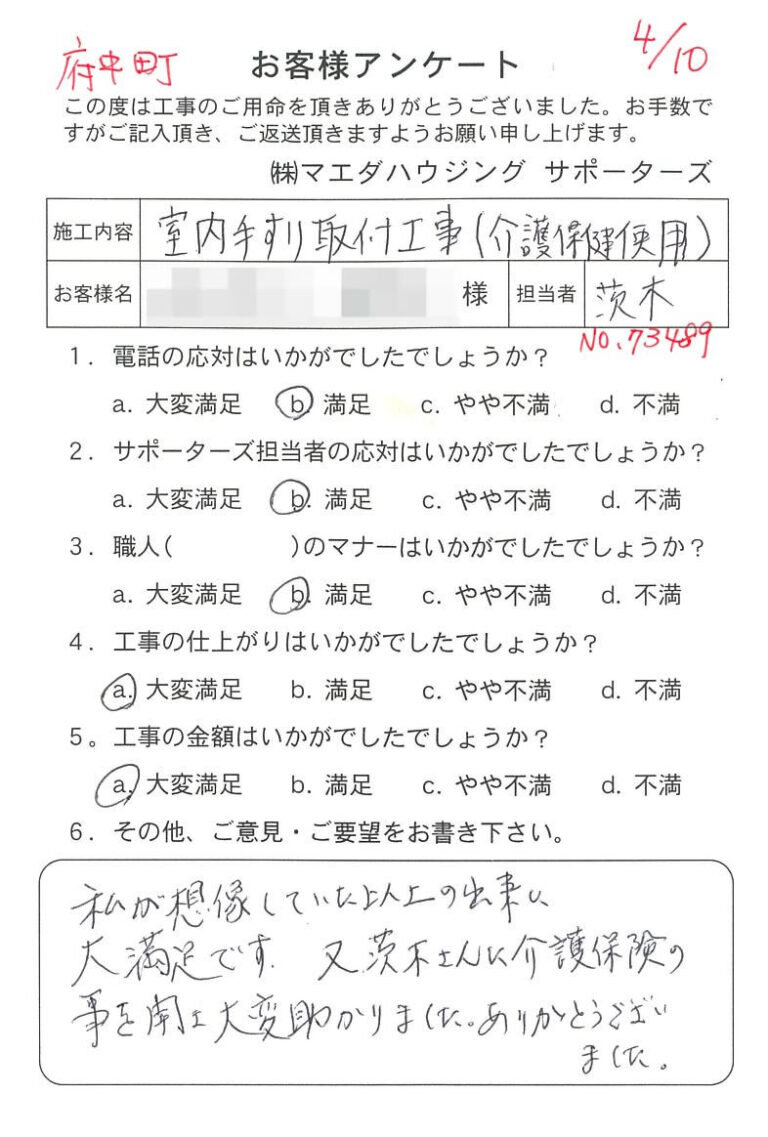 府中町 お客様アンケート 4/10
この度は工事のご用命を頂きありがとうございました。お手数で
すがご記入頂き、ご返送頂きますようお願い申し上げます。
㈱マエダハウジング サポーターズ
施工内容 室内手すり取付工事(介護保健使用)
お客様名 様 担当者 茨木
NO.73489
1. 電話の応対はいかがでしたでしょうか?
a. 大変満足 b. 満足 c. やや不満 d. 不満
2. サポーターズ担当者の応対はいかがでしたでしょうか?
a. 大変満足 b. 満足 c. やや不満 d. 不満
3. 職人( )のマナーはいかがでしたでしょうか?
a. 大変満足 b. 満足 c. やや不満 d. 不満
4. 工事の仕上がりはいかがでしたでしょうか?
a. 大変満足 b. 満足 c. やや不満 d. 不満
5。工事の金額はいかがでしたでしょうか?
a. 大変満足 b. 満足 c. やや不満 d. 不満
6. その他、ご意見・ご要望をお書き下さい。
私が想像していた以上の出来に
大満足です. 又茨木さんに介護保険の
事を聞き大変助かりました。ありがとうござい
ました。